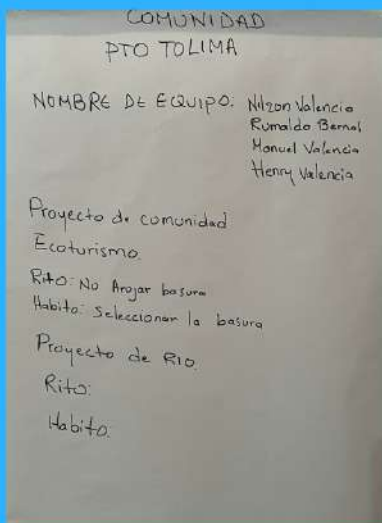 COMUNIDAD
PTO TOLIMA
NOMBRE DE EQUIPO: Nilzon Valencia
Rumaldo Bernal
Manuel Valencia
Henry Valencia
Proyecto de comunidad
Ecoturismo.
Rito: No Arojar basura
Habito: Seleccionar la basura
Proyecto de RIO.
Rito:
Habito: